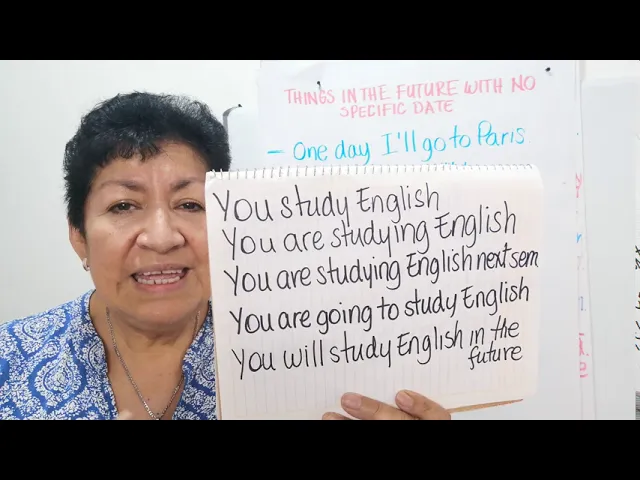 THINGS IN THE FUTURE WITH NO
SPECIFIC DATE
- One day I'll go to Paris
You study English
You are studying English
You are studying English next sem
You are going to study English
You will study English in the
future